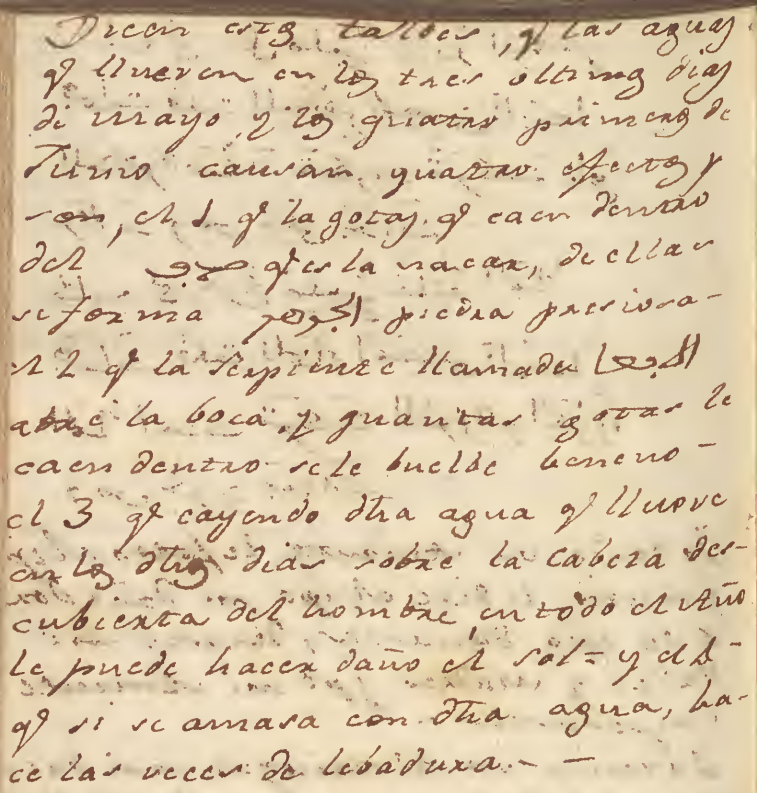 Dicen estos tales, q̃ las aguas
q̃ llueven en los tres ultimos dias
de mayo y los quatro primeros de
Junio causan quatro efectos y
son, el 1 q̃ la gotas q̃ caen dentro
del صدف q̃ es la nacar, de ellas
se forma الجوهر piedra presiosa-
el 2 q̃ la serpiente llamada
abre la boca, y quantas gotas le
caen dentro se le buelbe beneno-
el 3 q̃ cayendo dha agua q̃ llueve
en los dhos dias sobre la cabeza des-
cubierta del hombre, en todo el Año
le puede hacer daño el sol= y el 4-
q̃ si se amasa con dha agua, ha-
ce las veces de lebadura.- -